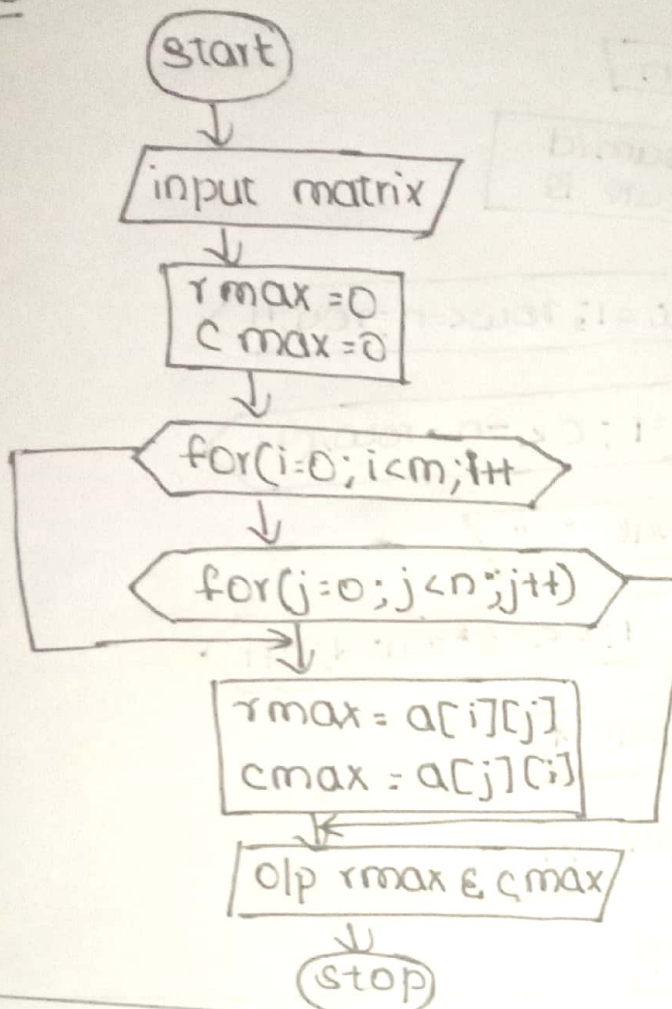 start
input matrix
rmax=0
cmax=0
for(i=0; i<m; i++
for(j=0; j<n; j++)
rmax = a[i][j]
cmax = a[j][i]
o/p rmax & cmax
stop